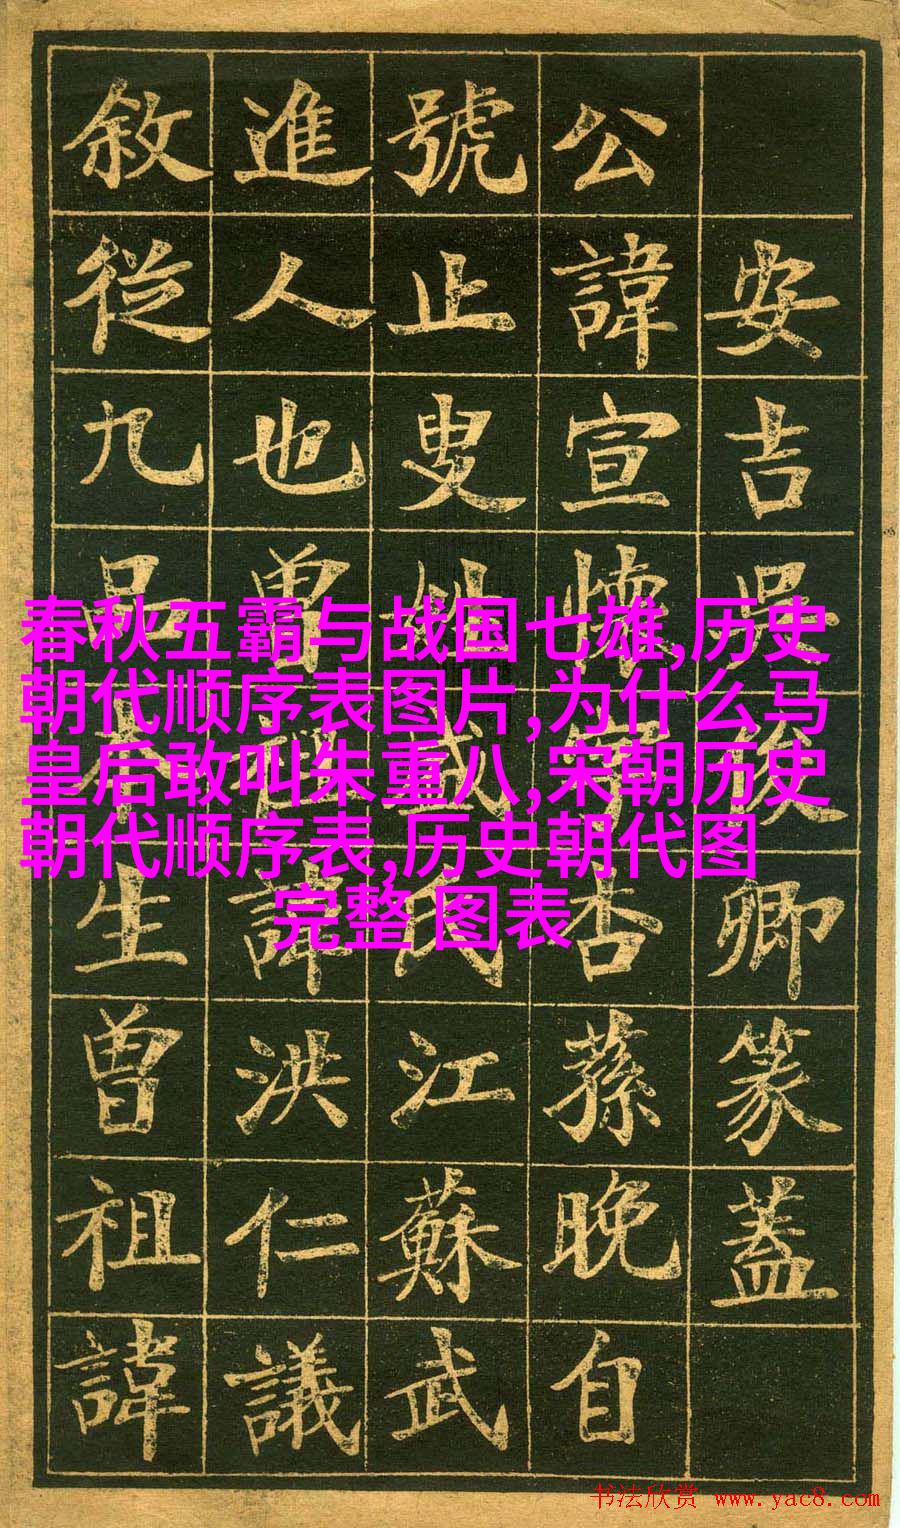 安吉吳俊卿篆蓋
公諱宣懷字杏蓀晚自
號止叟姓盛氏江蘇武
進人也曾祖諱洪仁議
敘從九品本生曾祖諱
春秋五霸与战国七雄,历史
朝代顺序表图片,为什么马
皇后敢叫朱重八,宋朝历史
朝代顺序表,历史朝代图
完整 图表
书法欣赏 www.yac8.com